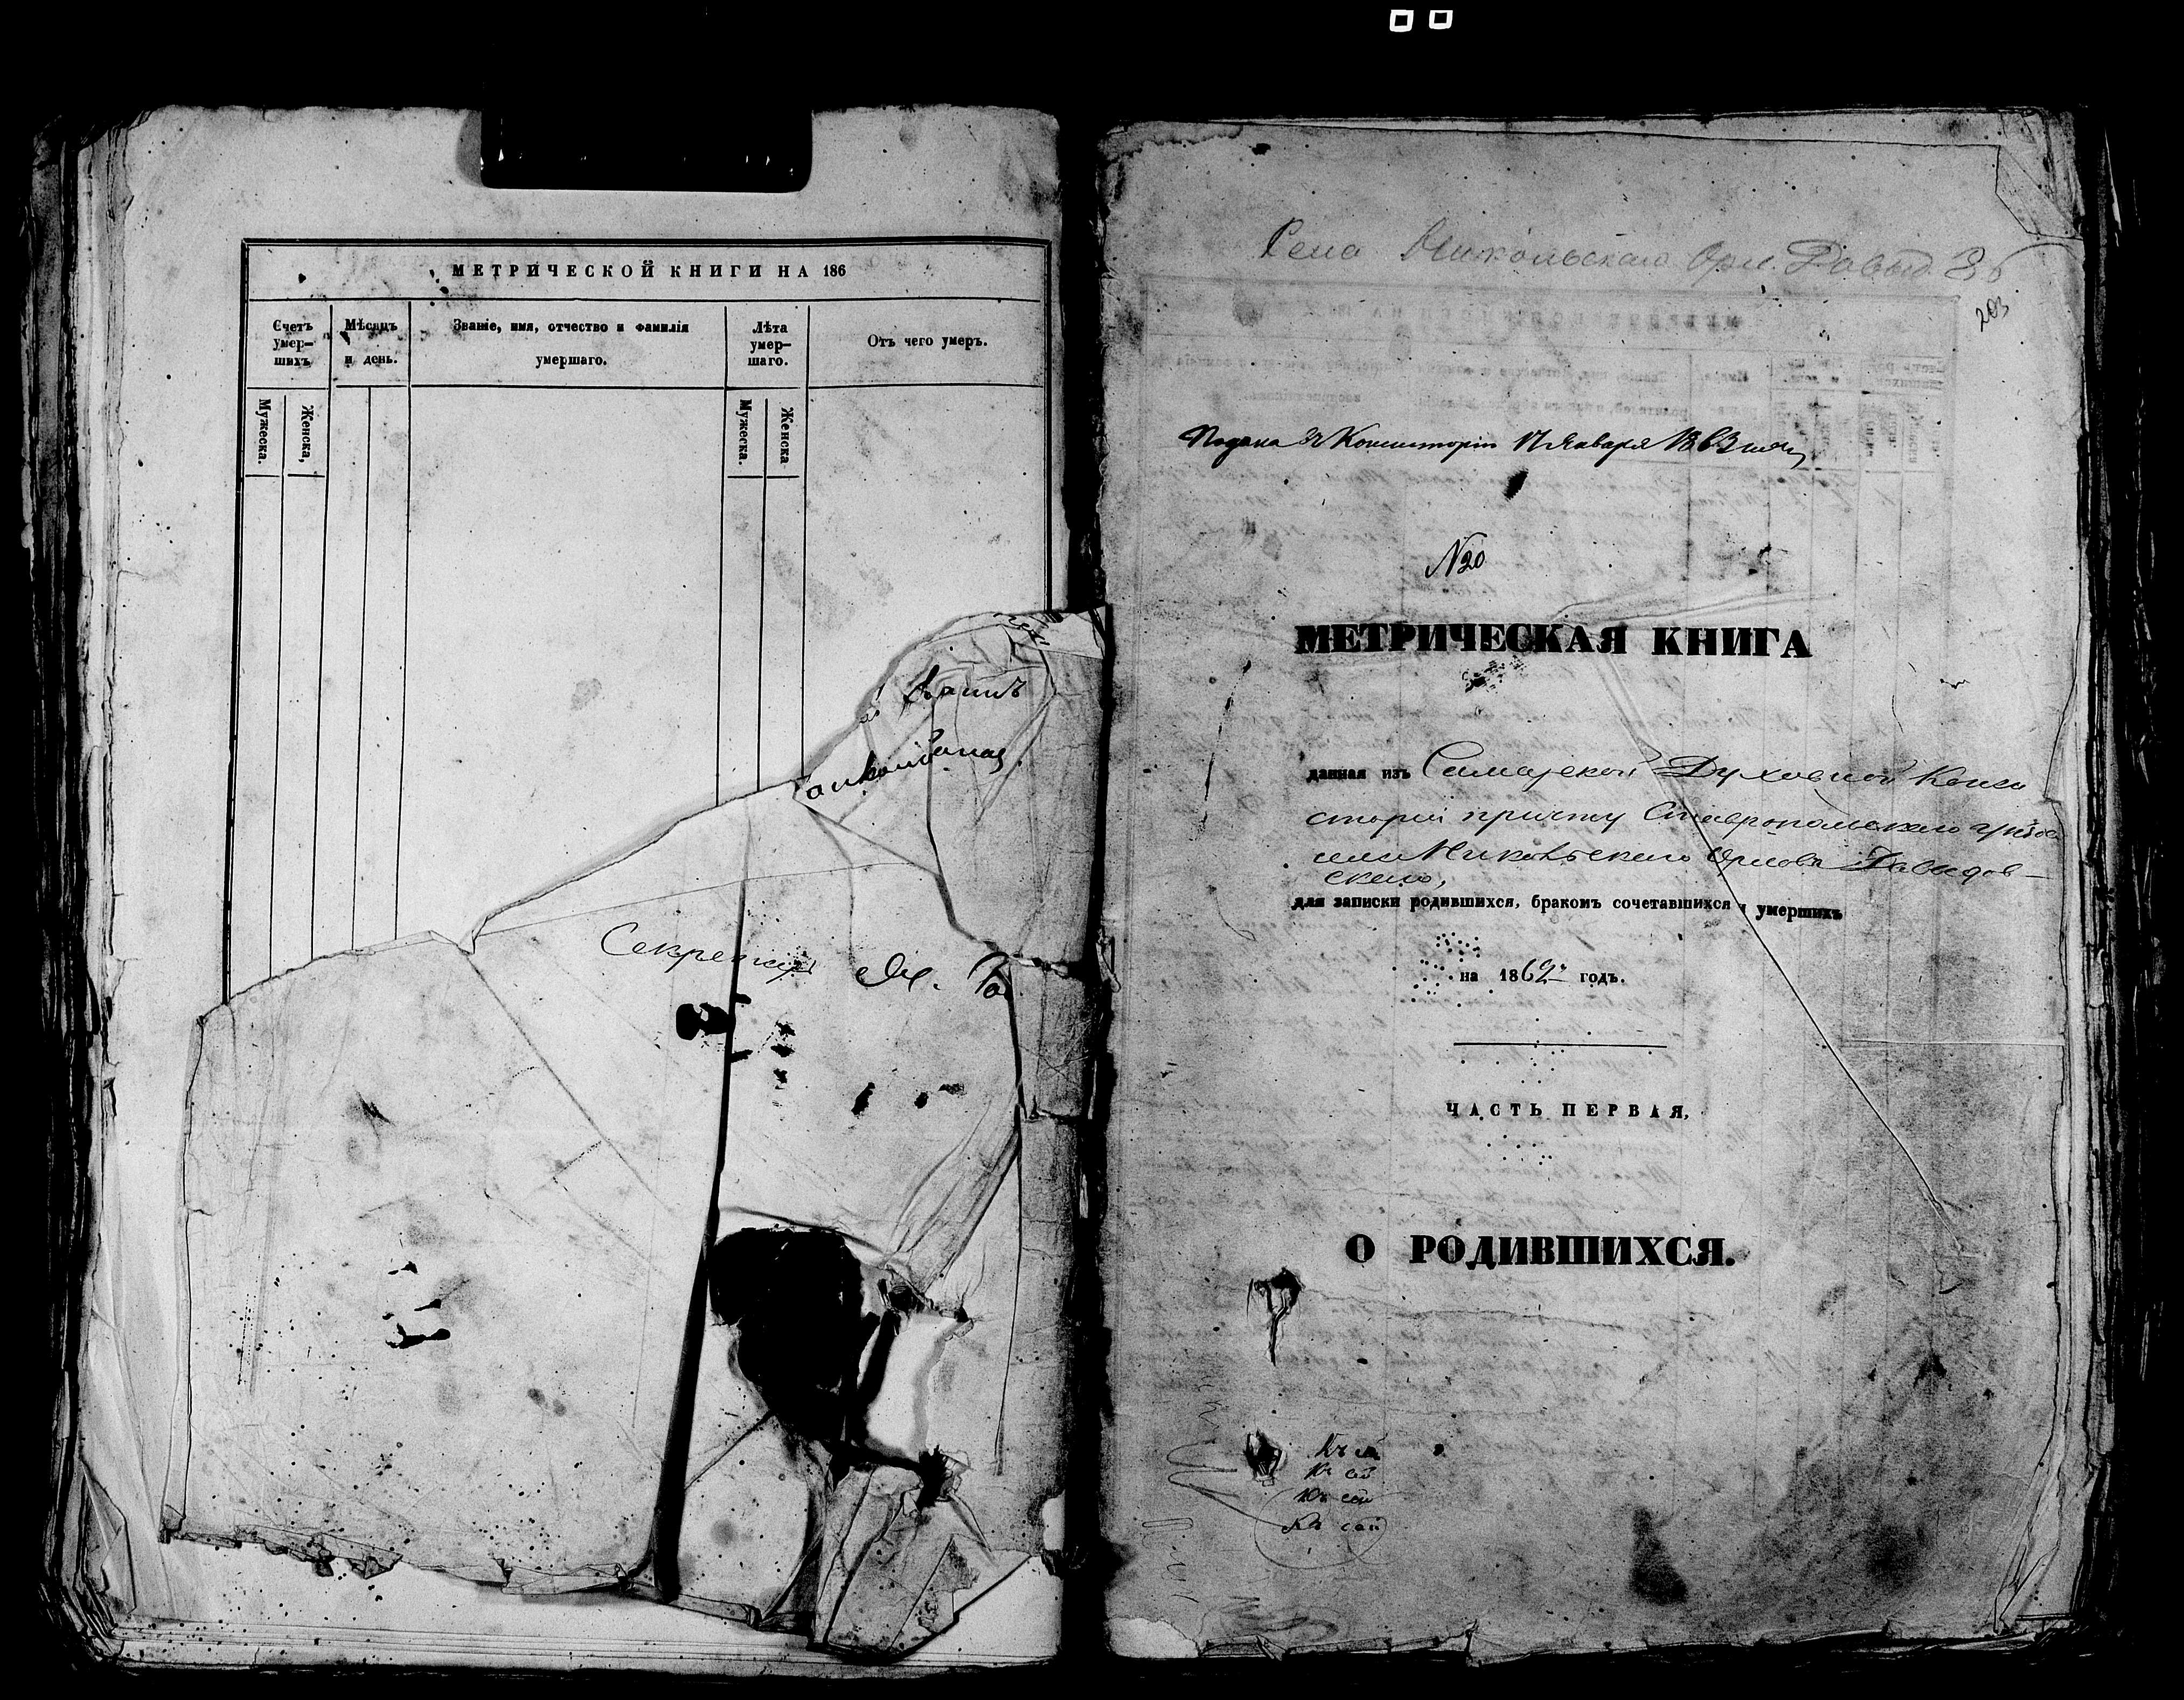 МЕТРИЧЕСКОЙ КНИГИ НА 186
Счетъ умер-шихъ
Мѣсяцъ и день.
Званіе, имя, отчество и фамилія умершаго.
Лѣта умер-шаго.
Отъ чего умеръ.
Мужеска.
Женска,
Мужеска.
Женска
Секретарь
Села Никольскаго Орл. Давыд. 36
203
Подана въ Консисторію 17 Января 1863
№20
МЕТРИЧЕСКАЯ КНИГА
данная изъ Самарской Духовной Конси
сторіи причту Ставропольскаго уѣзда
села Никольскаго Орлова Давыдов-
скаго,
для записки родившихся, бракомъ сочетавшихся и умершихъ
на 1862 годъ.
ЧАСТЬ ПЕРВАЯ,
О РОДИВШИХСЯ.